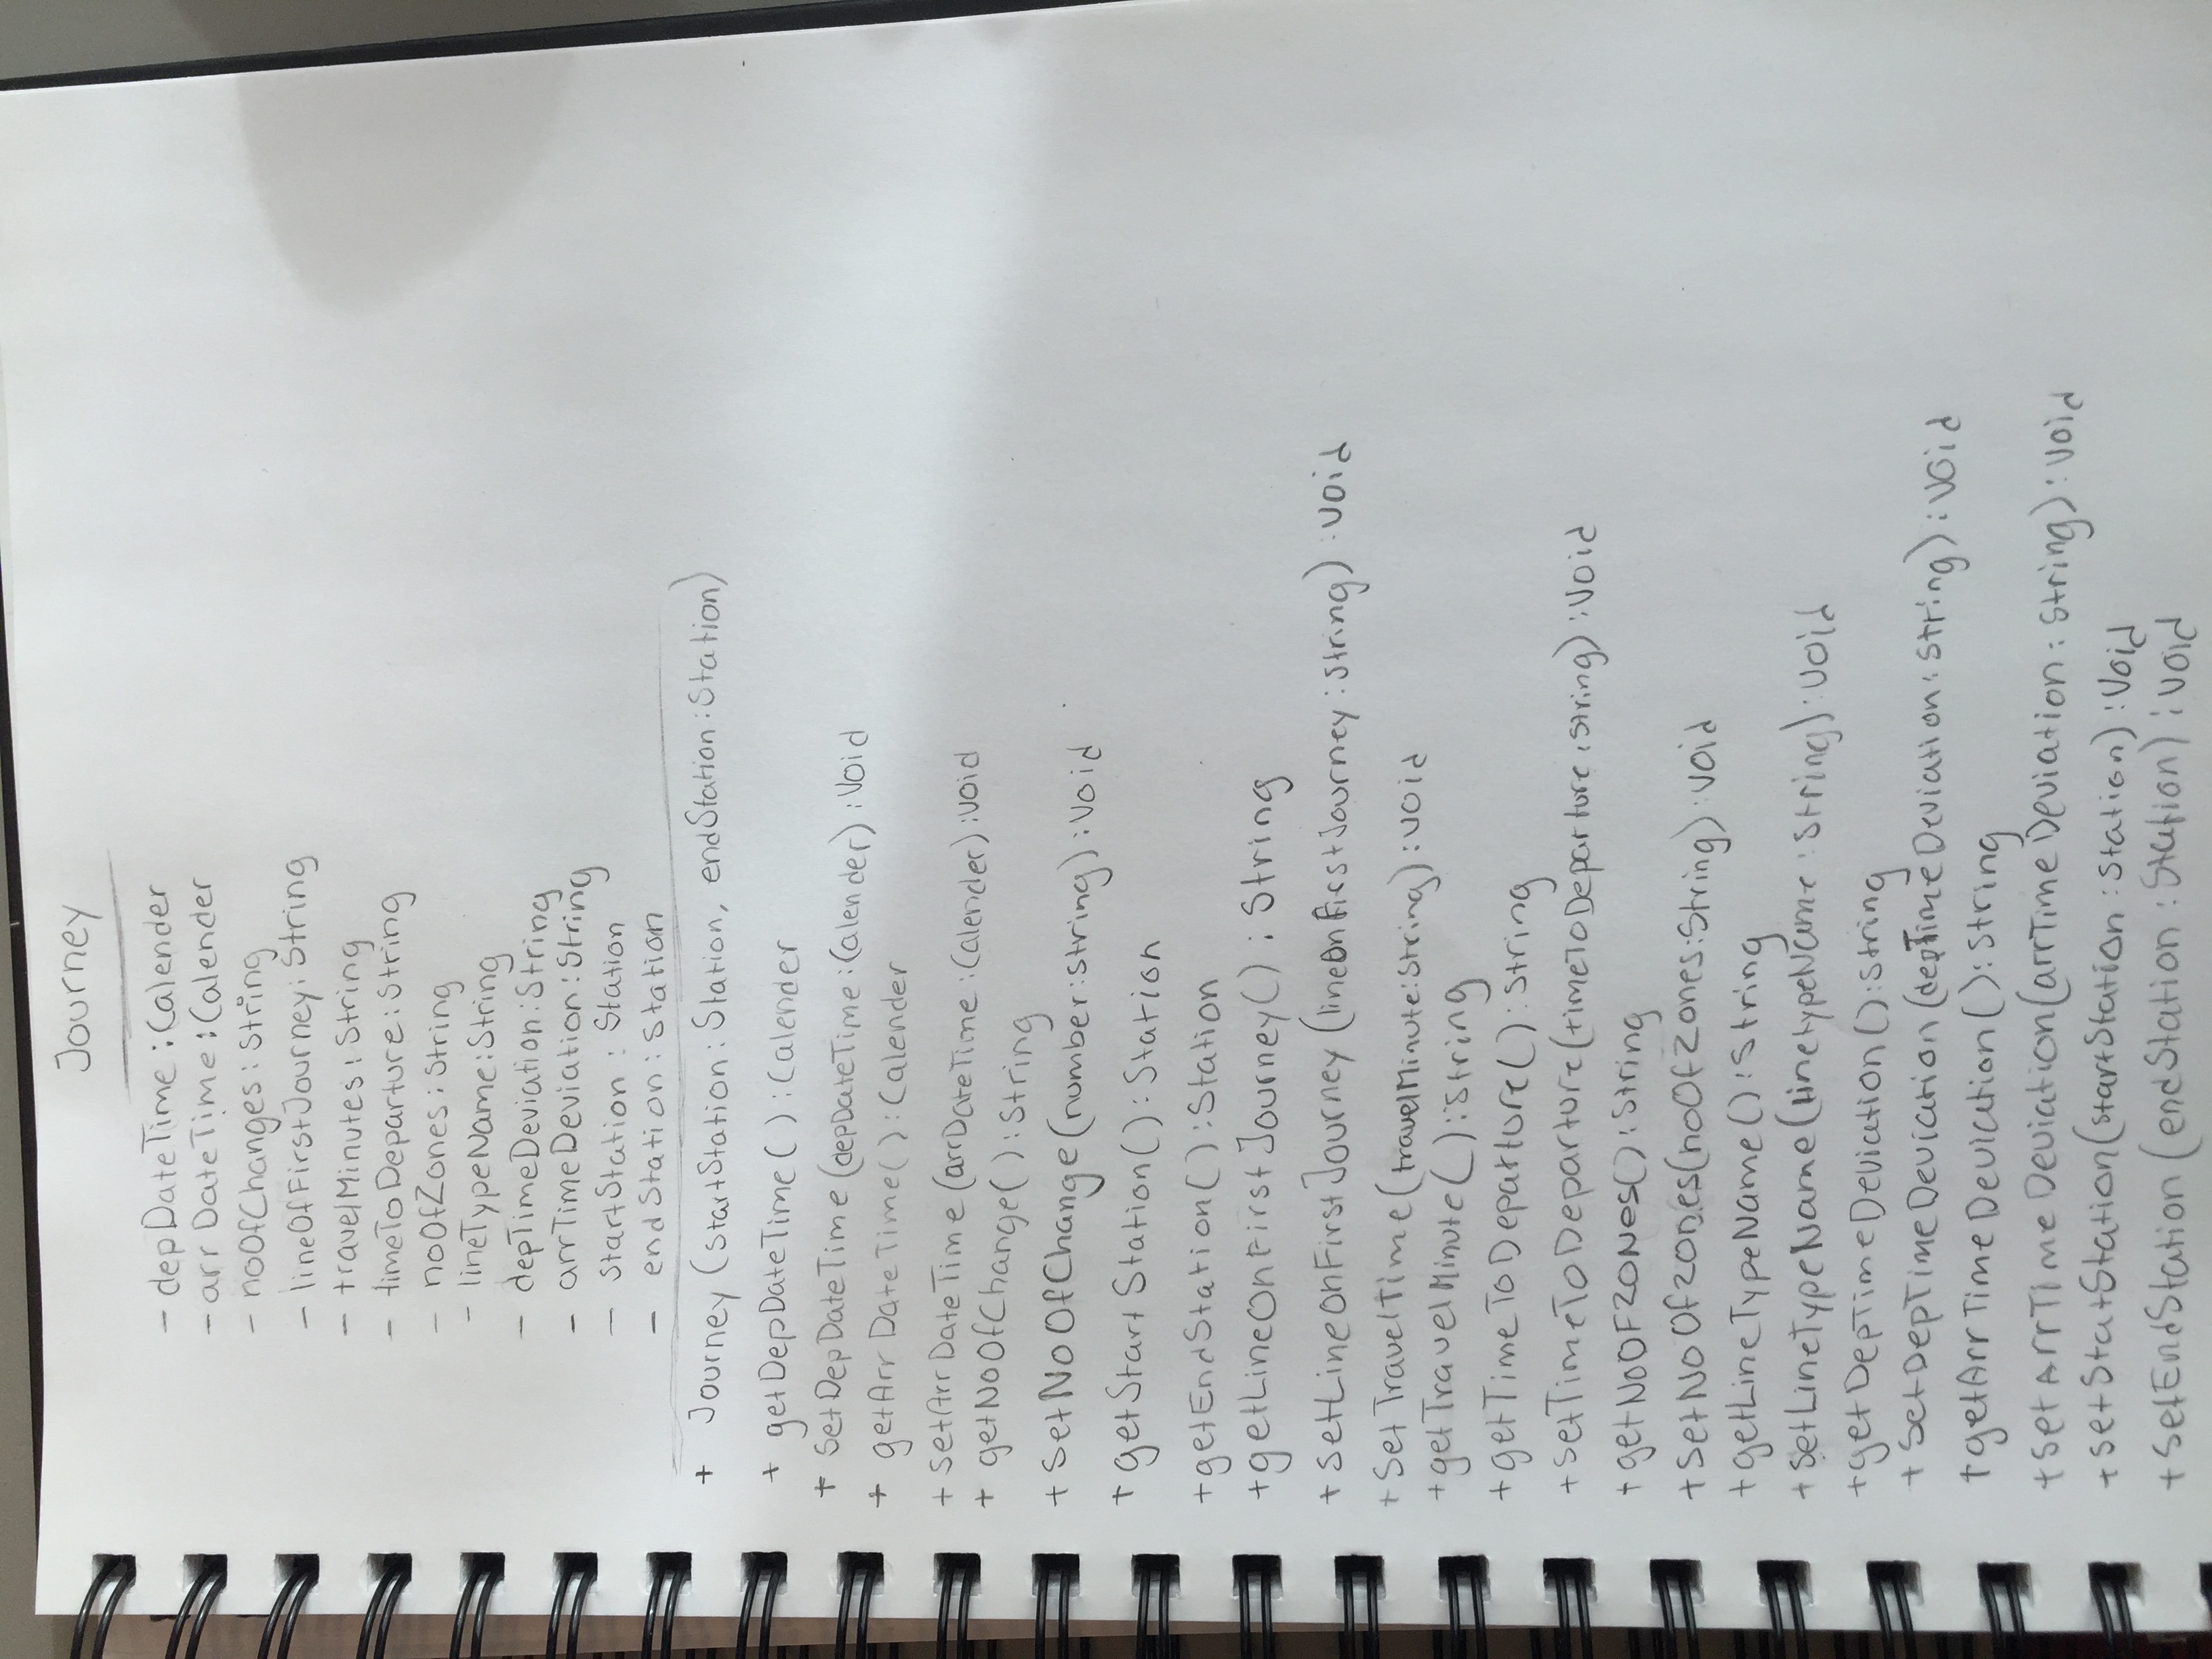 Journey
- depDateTime : Calender
- arrDateTime : Calender
- noOfChanges : String
- lineOfFirstJourney : String
- travelMinutes : String
- timeToDeparture : String
- noOfZones : String
- lineTypeName : String
- depTimeDeviation : String
- arrTimeDeviation : String
- startStation : Station
- endStation : Station
+ Journey (startStation : Station, endStation : Station)
+ getDepDateTime ( ) : Calender
+ SetDepDateTime (depDateTime : Calender) : Void
+ getArrDateTime( ) : Calender
+ SetArrDateTime (arrDateTime : Calender) : void
+ getNoOfChange( ) : String
+ SetNoOfChange (number : string) : Void
+ getStartStation() : Station
+ getEndStation( ) : Station
+ getLineOnFirstJourney() : String
+ setLineOnFirstJourney (lineOnFirstJourney : string) : void
+ Set TravelTime (travelMinute : String) : void
+ getTravelMinute( ) : String
+ getTimeToDeparture() : String
+ SetTimeToDeparture (timeToDeparture : string) : Void
+ getNoOFZones() : String
+ SetNoOfZones(noOfZones : String) : void
+ getLineTypeName() : String
+ SetLineTypeName (linetypeName : String) : void
+ getDepTimeDeviation () : String
+ SetDepTimeDeviation (depTimeDeviation : String) : void
+ getArrTimeDeviation ( ) : String
+ SetArrTimeDeviation (arrTimeDeviation : String) : void
+ setStatStation (startStation : Station) : Void
+ SetEndStation (endStation : Station) : Void